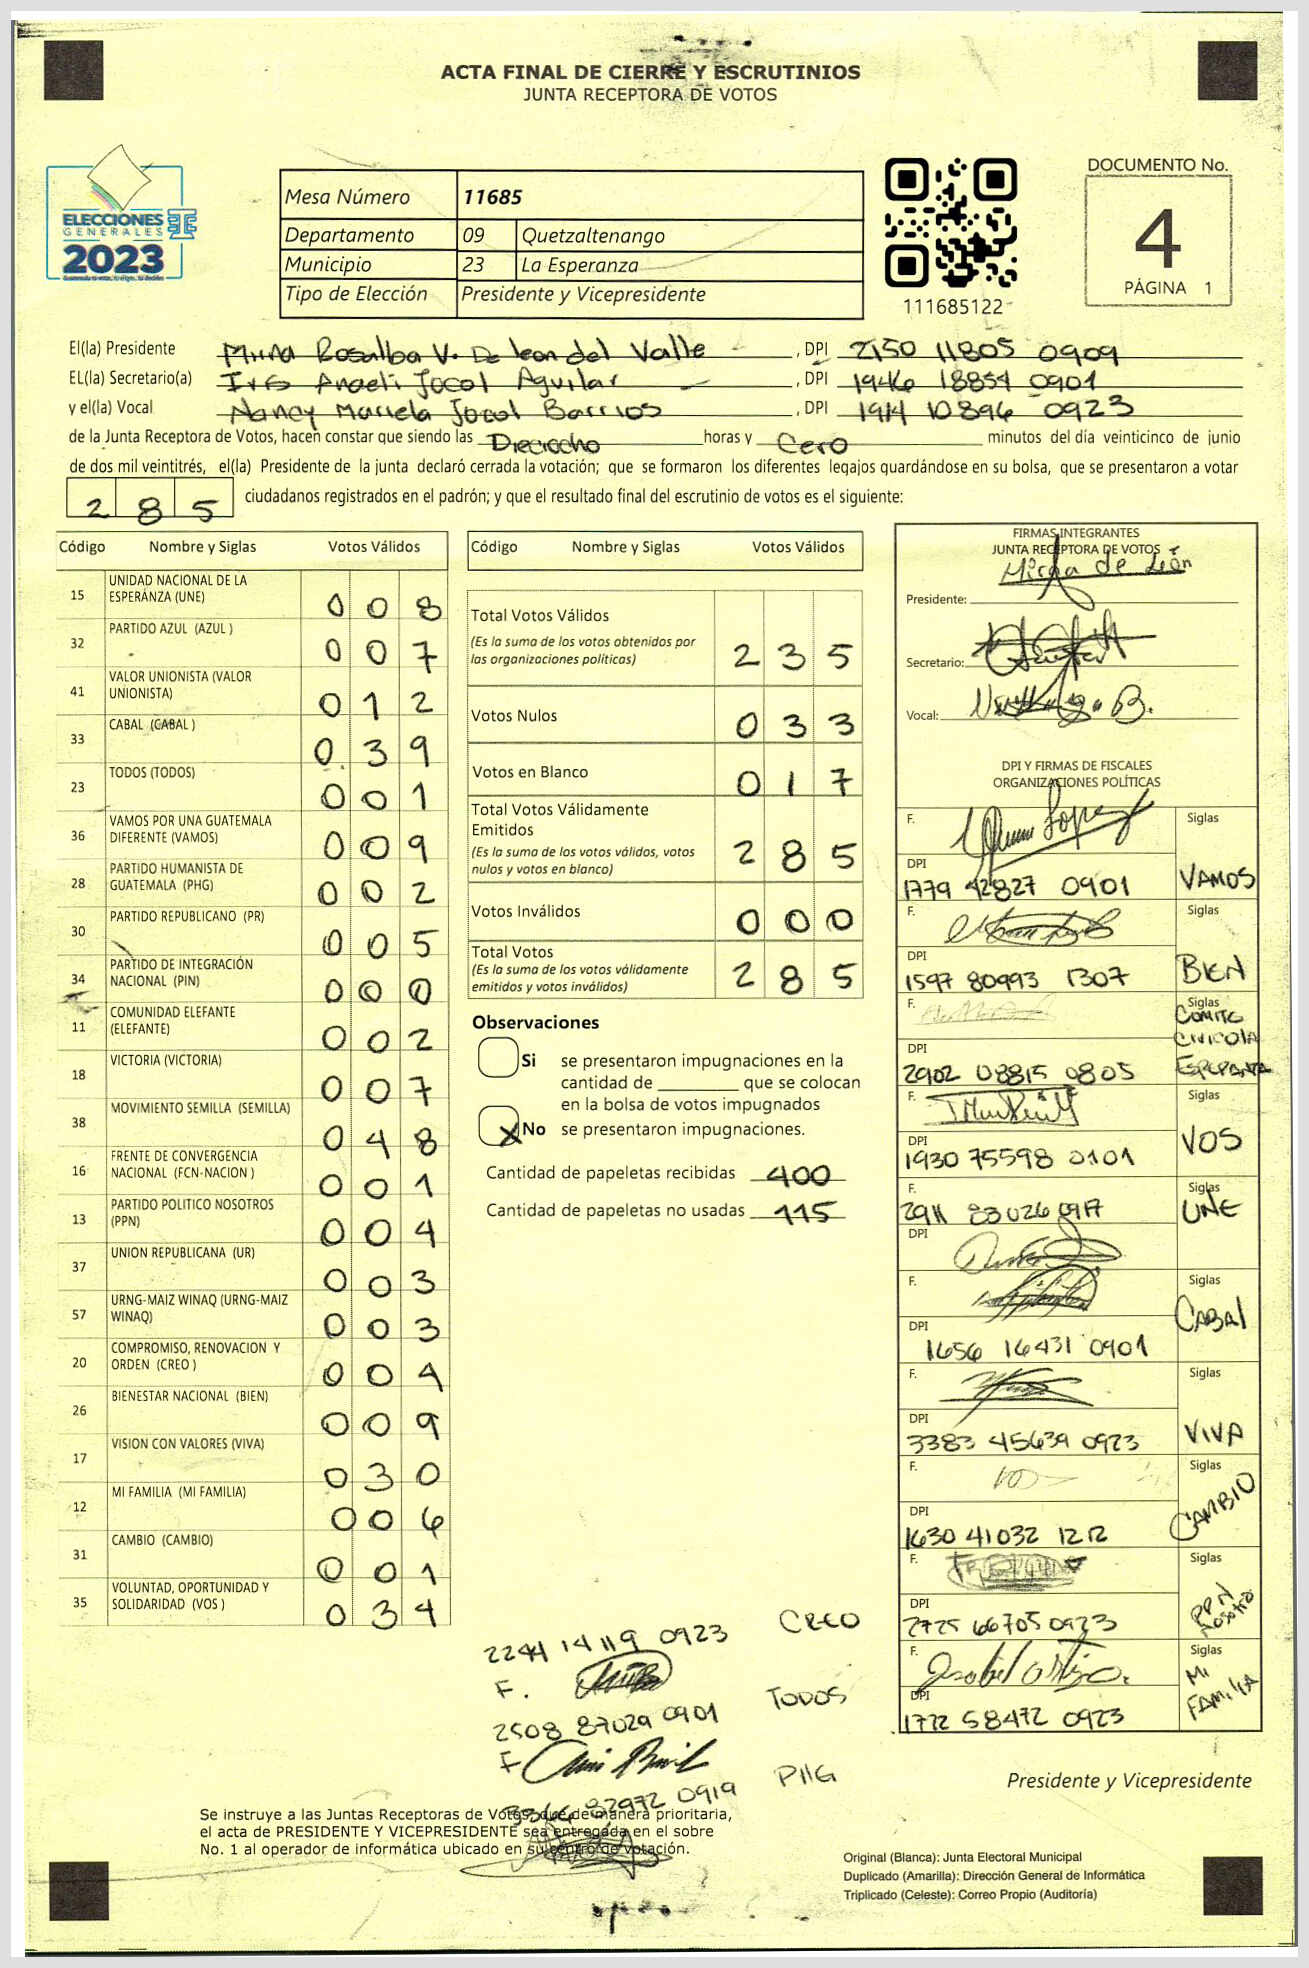 ACTA FINAL DE CIERRE Y ESCRUTINIOS
JUNTA RECEPTORA DE VOTOS
ELECCIONES
GENERALES
2023
Mesa Número 11685
Departamento 09 Quetzaltenango
Municipio 23 La Esperanza
Tipo de Elección Presidente y Vicepresidente
111685122
DOCUMENTO No.
4
PÁGINA 1
El(la) Presidente Mirna Rosalba V. De leon del Valle, DPI 2150 11805 0909
EL(la) Secretario(a) Iris Anaeli Jocol Aguilar, DPI 1946 18854 0901
y el(la) Vocal Nancy Mariela Jocol Barrios, DPI 1914 10896 0923
de la Junta Receptora de Votos, hacen constar que siendo las Dieciocho horas y Cero minutos del día veinticinco de junio
de dos mil veintitrés, el(la) Presidente de la junta declaró cerrada la votación; que se formaron los diferentes legajos guardándose en su bolsa, que se presentaron a votar
285 ciudadanos registrados en el padrón; y que el resultado final del escrutinio de votos es el siguiente:
Código Nombre y Siglas Votos Válidos
15 UNIDAD NACIONAL DE LA ESPERANZA (UNE) 008
32 PARTIDO AZUL (AZUL ) 007
41 VALOR UNIONISTA (VALOR UNIONISTA) 012
33 CABAL (CABAL ) 039
23 TODOS (TODOS) 001
36 VAMOS POR UNA GUATEMALA DIFERENTE (VAMOS) 009
28 PARTIDO HUMANISTA DE GUATEMALA (PHG) 002
30 PARTIDO REPUBLICANO (PR) 005
34 PARTIDO DE INTEGRACIÓN NACIONAL (PIN) 000
11 COMUNIDAD ELEFANTE (ELEFANTE) 002
18 VICTORIA (VICTORIA) 007
38 MOVIMIENTO SEMILLA (SEMILLA) 048
16 FRENTE DE CONVERGENCIA NACIONAL (FCN-NACION ) 001
13 PARTIDO POLITICO NOSOTROS (PPN) 004
37 UNION REPUBLICANA (UR) 003
57 URNG-MAIZ WINAQ (URNG-MAIZ WINAQ) 003
20 COMPROMISO, RENOVACION Y ORDEN (CREO ) 004
26 BIENESTAR NACIONAL (BIEN) 009
17 VISION CON VALORES (VIVA) 030
12 MI FAMILIA (MI FAMILIA) 006
31 CAMBIO (CAMBIO) 001
35 VOLUNTAD, OPORTUNIDAD Y SOLIDARIDAD (VOS ) 034
Código Nombre y Siglas Votos Válidos
Total Votos Válidos 235
(Es la suma de los votos obtenidos por
las organizaciones políticas)
Votos Nulos 033
Votos en Blanco 017
Total Votos Válidamente
Emitidos 285
(Es la suma de los votos válidos, votos
nulos y votos en blanco)
Votos Inválidos 000
Total Votos 285
(Es la suma de los votos válidamente
emitidos y votos inválidos)
Observaciones
Si se presentaron impugnaciones en la
cantidad de ________ que se colocan
en la bolsa de votos impugnados
X No se presentaron impugnaciones.
Cantidad de papeletas recibidas 400
Cantidad de papeletas no usadas 115
FIRMAS INTEGRANTES
JUNTA RECEPTORA DE VOTOS
Presidente: Mirna de León
Secretario:
Vocal:
DPI Y FIRMAS DE FISCALES
ORGANIZACIONES POLÍTICAS
F. Siglas
DPI 1779 42827 0901 VAMOS
F. Siglas
DPI 1597 80993 1307 BIEN
F. Siglas
COMITE
CIVICO LA
ESPERANZA
DPI 2902 08815 0805
F. Siglas
DPI 1930 75598 0101 VOS
F. Siglas
2911 83026 0917 UNE
DPI
F. Siglas
DPI 1656 16431 0901 CABAL
F. Siglas
DPI 3383 45639 0923 VIVA
F. Siglas
DPI 1630 41032 1212 CAMBIO
F. Siglas
DPI 2725 66705 0923 PPN Nosotros
F. Isabel Ortiz. Siglas
DPI 1772 58472 0923 MI FAMILIA
2244 14119 0923 CREO
F.
2508 87029 0901 TODOS
F
3366 82972 0919 PHG
Presidente y Vicepresidente
Se instruye a las Juntas Receptoras de Votos que de manera prioritaria,
el acta de PRESIDENTE Y VICEPRESIDENTE sea entregada en el sobre
No. 1 al operador de informática ubicado en su centro de votación.
Original (Blanca): Junta Electoral Municipal
Duplicado (Amarilla): Dirección General de Informática
Triplicado (Celeste): Correo Propio (Auditoría)